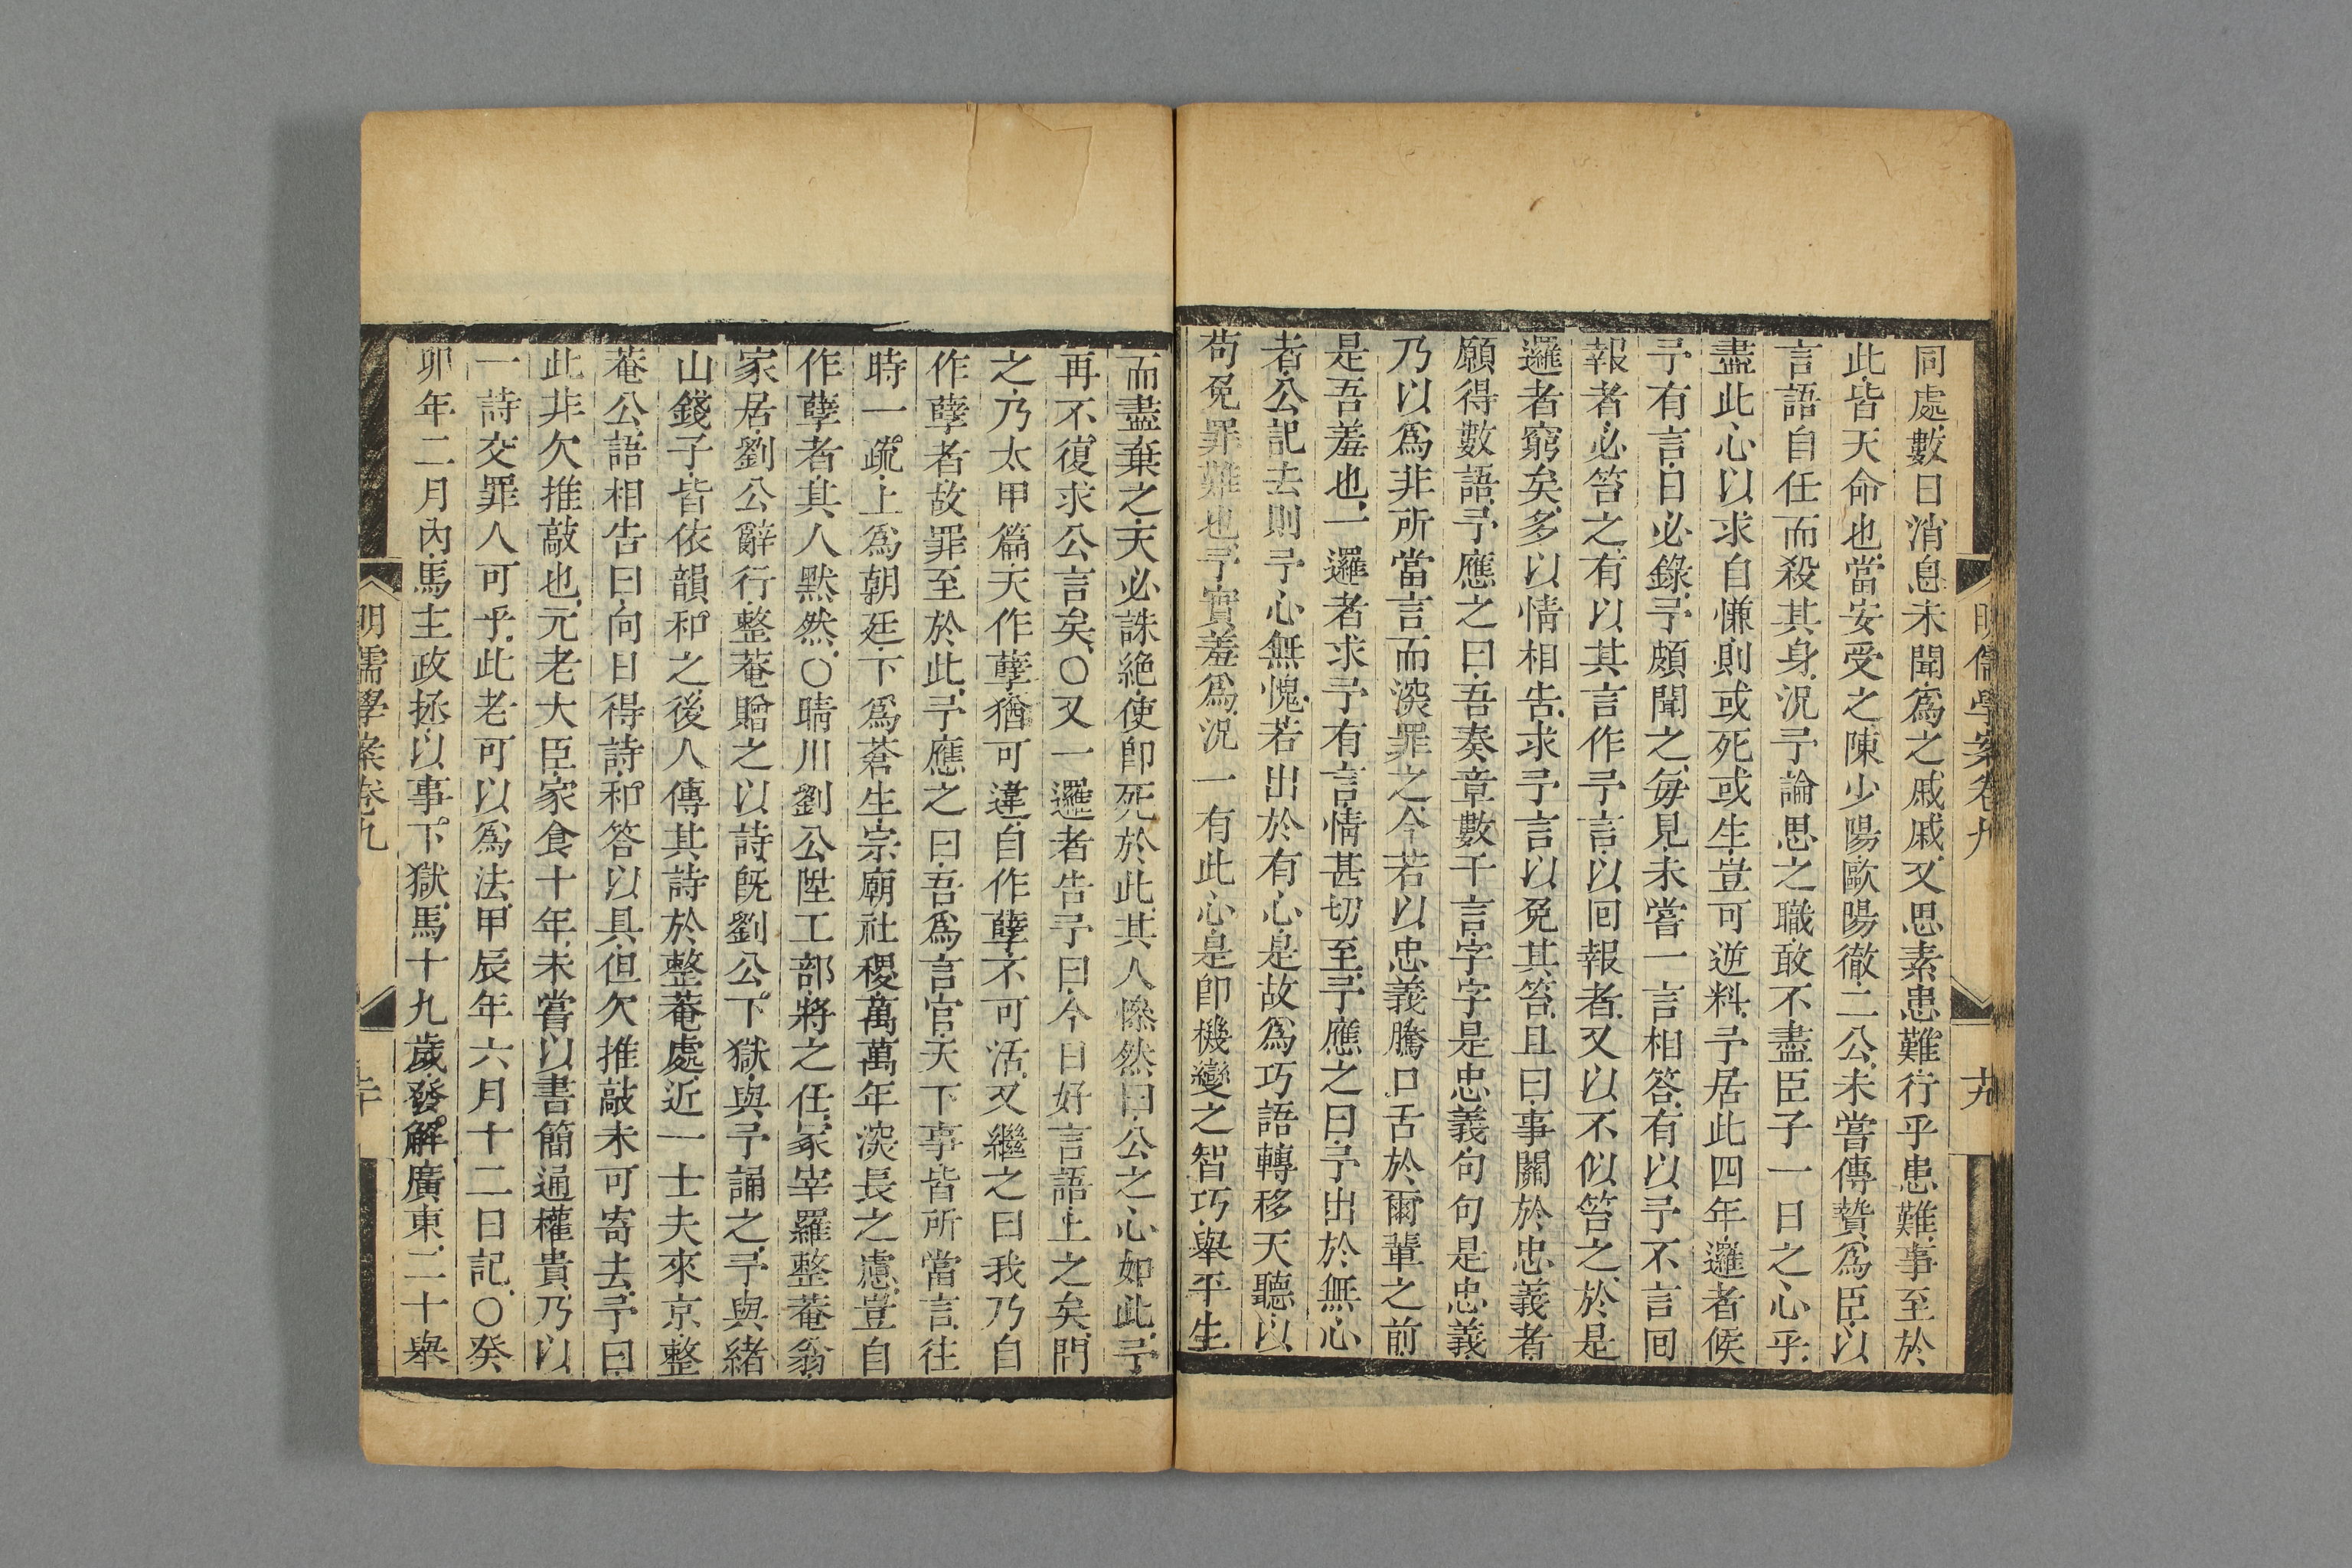 明儒學案卷九
十九
同處數日消息未聞爲之戚戚又思素患難行乎患難事至於
此皆天命也當安受之陳少陽歐陽徹二公未嘗傳贄爲臣以
言語自任而殺其身況予論思之職敢不盡臣子一日之心乎
盡此心以求自慊則或死或生豈可逆料予居此四年邏者候
予有言日必錄予頗聞之毎見未嘗一言相答有以予不言回
報者必笞之有以其言作予言以回報者又以不似笞之於是
邏者窮矣多以情相告求予言以免其笞且曰事關於忠義者
願得數語予應之曰吾奏章數千言字字是忠義句句是忠義
乃以爲非所當言而深罪之今若以忠義騰口舌於爾輩之前
是吾羞也一邏者求予有言情甚切至予應之曰予出於無心
者公記去則予心無愧若出於有心是故爲巧語轉移天聽以
苟免罪難也予實羞爲況一有此心是卽機變之智巧舉平生
而盡棄之天必誅絶使卽死於此其人憮然曰公之心如此予
再不復求公言矣○又一邏者告予曰今日好言語上之矣問
之乃太甲篇天作孽猶可違自作孽不可活又繼之曰我乃自
作孽者故罪至於此予應之曰吾爲言官天下事皆所當言往
時一疏上爲朝廷下爲蒼生宗廟社稷萬萬年深長之慮豈自
作孽者其人默然○晴川劉公陞工部將之任冢宰羅整菴翁
家居劉公辭行整菴贈之以詩旣劉公下獄與予誦之予與緒
山錢子皆依韻和之後人傳其詩於整菴處近一士夫來京整
菴公語相告曰向日得詩和答以具但欠推敲未可寄去予曰
此非欠推敲也元老大臣家食十年未嘗以書簡通權貴乃以
一詩交罪人可乎此老可以爲法甲辰年六月十二日記○癸
卯年二月內馬主政拯以事下獄馬十九歲發解廣東二十舉
明儒學案卷九